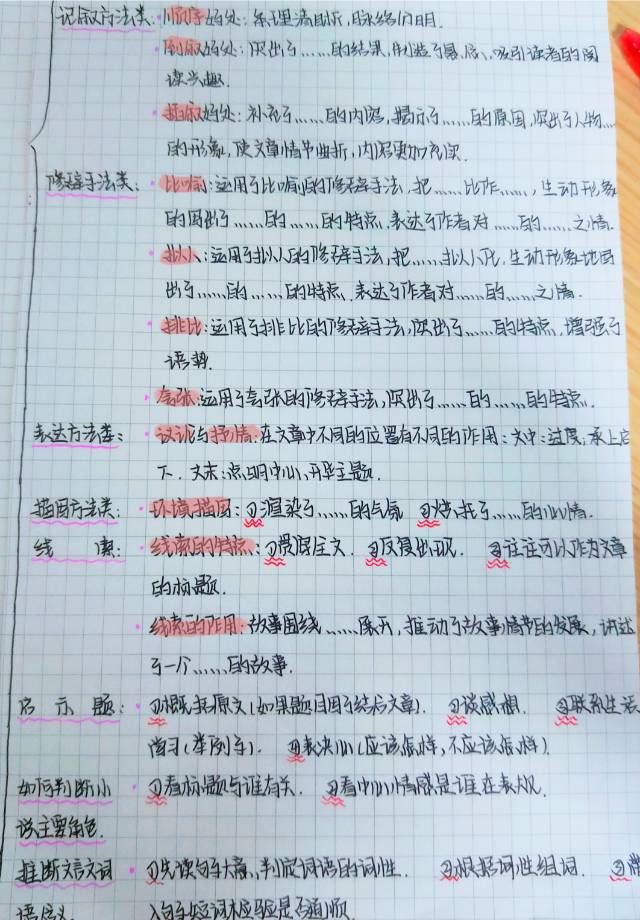 记叙方法类：顺序好处：条理清晰，脉络分明.
倒叙好处：突出了……的结果，制造了悬念，吸引读者的阅
读兴趣.
插叙好处：补充了……的内容，揭示了……的原因，突出了人物…
的形象，使文章情节曲折，内容更加充实.
修辞手法类：比喻：运用了比喻的修辞手法，把……比作……，生动形象
的写出了……的……的特点.表达了作者对……的……之情.
拟人：运用了拟人的修辞手法，把……拟人化，生动形象地写
出了……的……的特点，表达了作者对……的……之情.
排比：运用了排比的修辞手法，突出了……的特点，增强了
语势.
夸张：运用了夸张的修辞手法，突出了……的……的特点.
表达方法类：议论与抒情：在文章中不同的位置有不同的作用：文中：过度，承上启
下.文末：点明中心，升华主题.
描写方法类：环境描写：①渲染了……的气氛 ②烘托了……的心情.
线索：线索的特点：①贯穿全文.②反复出现.③往往可以作为文章
的标题.
线索的作用：故事围绕……展开，推动了故事情节的发展，讲述
了一个……的故事.
启示题：①概括原文(如果题目写了结合文章).②谈感想.③联系生活
学习(举例子).④表决心(应该怎样，不应该怎样)
如何判断小 ①看标题与谁有关.②看中心情感是谁在表现.
说主要角色.
推断文言文词 ①先读句子大意，判定词语的词性.②根据词性组词.③带
语意义. 入句子验证检验是否通顺.